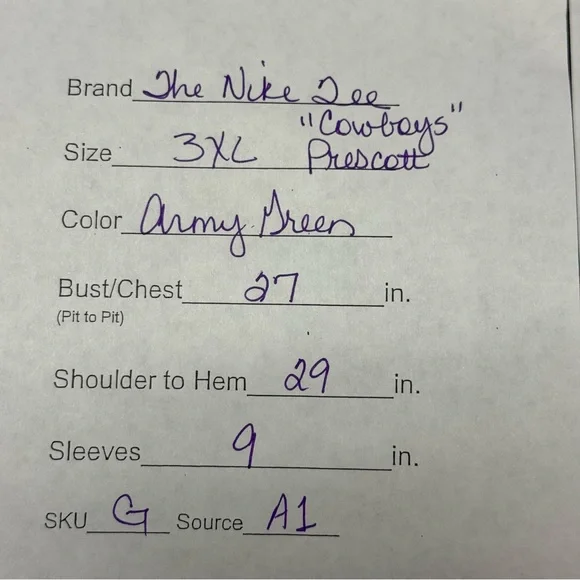 Brand The Nike Tee
"Cowboys"
Size 3XL Prescott
Color Army Green
Bust/Chest 27 in.
(Pit to Pit)
Shoulder to Hem 29 in.
Sleeves 9 in.
SKU G Source A1